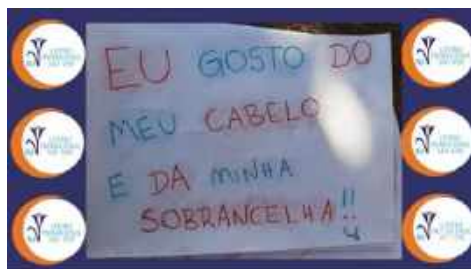 EU GOSTO DO
MEU CABELO
E DA MINHA
SOBRANCELHA!!